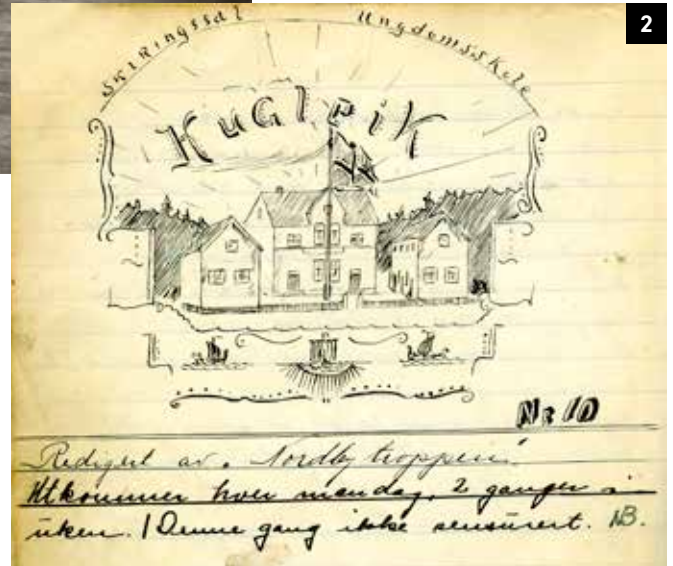 2
Skiringssal Ungdomsskole
Kuglpik
Nr 10
Redigert av "Nordbytroppen".
Utkommer hver mandag, 2 ganger i
uken. | Denne gang ikke sensurert. NB.